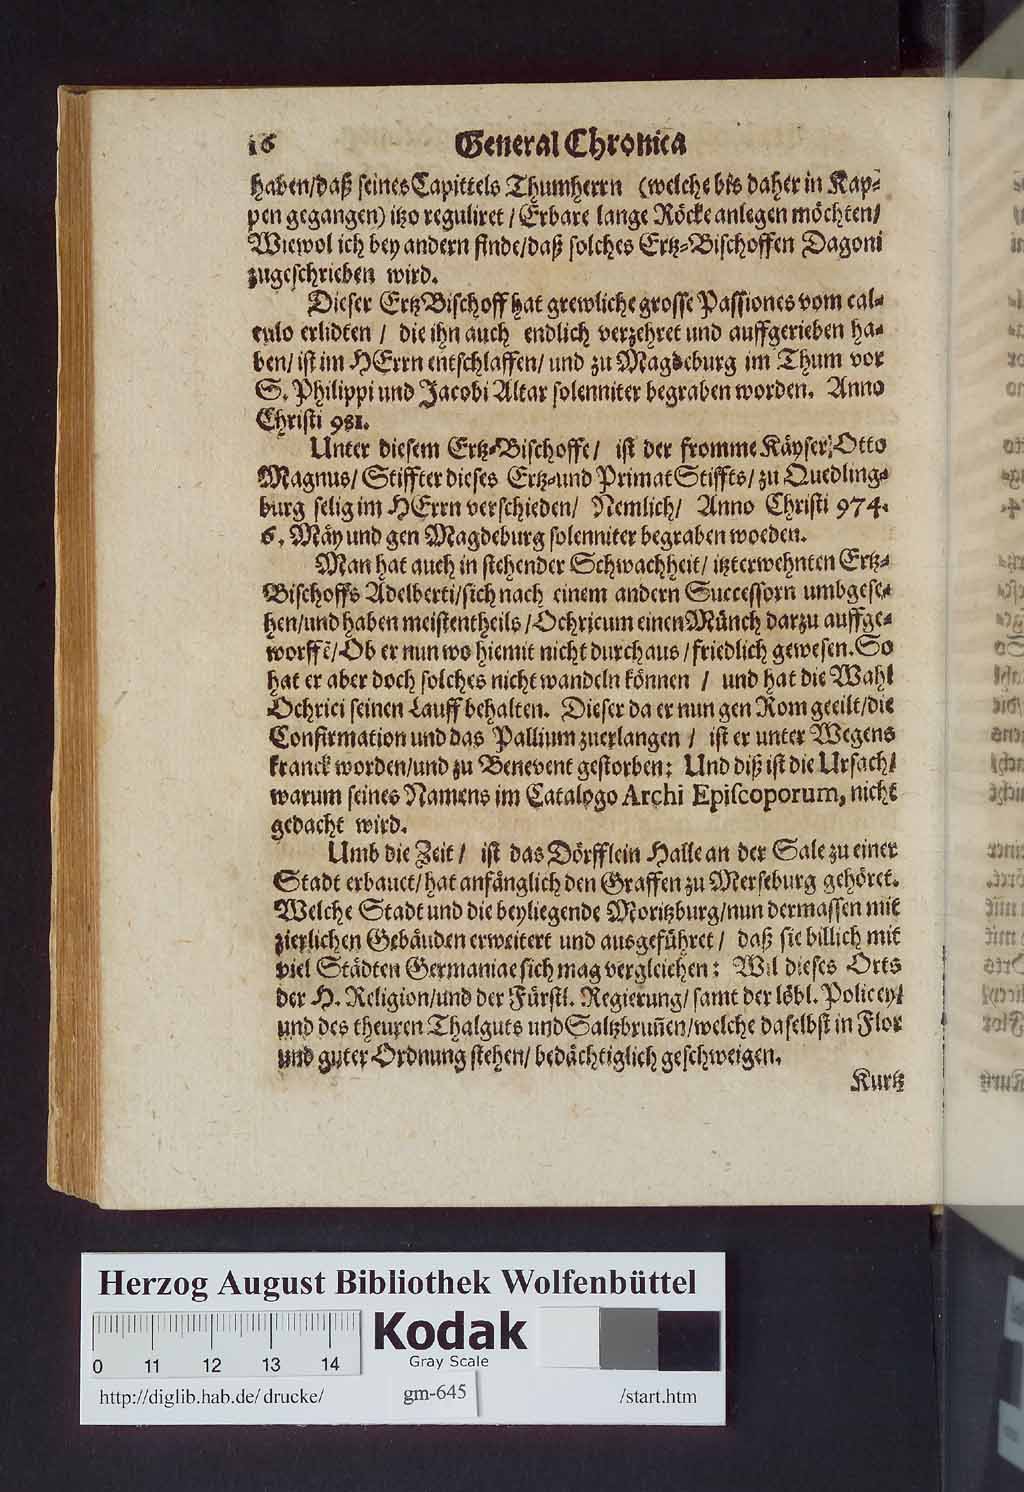 16 General Chronica
haben/daß seines Capittels Thumherrn (welche bis daher in Kap-
pen gegangen) itzo reguliret / Erbare lange Röcke anlegen möchten/
Wiewol ich bey andern finde/daß solches Ertz-Bischoffen Dagoni
zugeschrieben wird.
Dieser Ertz Bischoff hat grewliche grosse Passiones vom cal-
culo erlidten / die ihn auch endlich verzehret und auffgerieben ha-
ben/ ist im HErrn entschlaffen/ und zu Magdeburg im Thum vor
S. Philippi und Jacobi Altar solenniter begraben worden. Anno
Christi 981.
Unter diesem Ertz-Bischoffe/ ist der fromme Käyser Otto
Magnus/ Stiffter dieses Ertz-und Primat Stiffts/ zu Quedling-
burg selig im HErrn verschieden/ Nemlich/ Anno Christi 974.
6. Mäy und gen Magdeburg solenniter begraben woeden.
Man hat auch in stehender Schwachheit/ itzterwehnten Ertz-
Bischoffs Adelberti/sich nach einem andern Successorn umbgese-
hen/und haben meistentheils/Ochricum einen Münch darzu auffge-
worffē/Ob er nun wo hiemit nicht durchaus/friedlich gewesen. So
hat er aber doch solches nicht wandeln können / und hat die Wahl
Ochrici seinen Lauff behalten. Dieser da er nun gen Rom geeilt/die
Confirmation und das Pallium zuerlangen / ist er unter Wegens
kranck worden/und zu Benevent gestorben: Und diß ist die Ursach/
warum seines Namens im Catalogo Archi Episcoporum, nicht
gedacht wird.
Umb die Zeit/ ist das Dörfflein Halle an der Sale zu einer
Stadt erbauet/hat anfänglich den Graffen zu Merseburg gehöret.
Welche Stadt und die beyliegende Moritzburg/nun dermassen mit
zierlichen Gebäuden erweitert und ausgeführet/ daß sie billich mit
viel Städten Germaniae sich mag vergleichen: Wil dieses Orts
der H. Religion/und der Fürstl. Regierung/ samt der löbl. Policey/
und des theuren Thalguts und Saltzbruñen/welche daselbst in Flor
und guter Ordnung stehen/ bedächtiglich geschweigen.
Kurtz
Herzog August Bibliothek Wolfenbüttel
0 11 12 13 14
Kodak
Gray Scale
http://diglib.hab.de/drucke/ gm-645 /start.htm